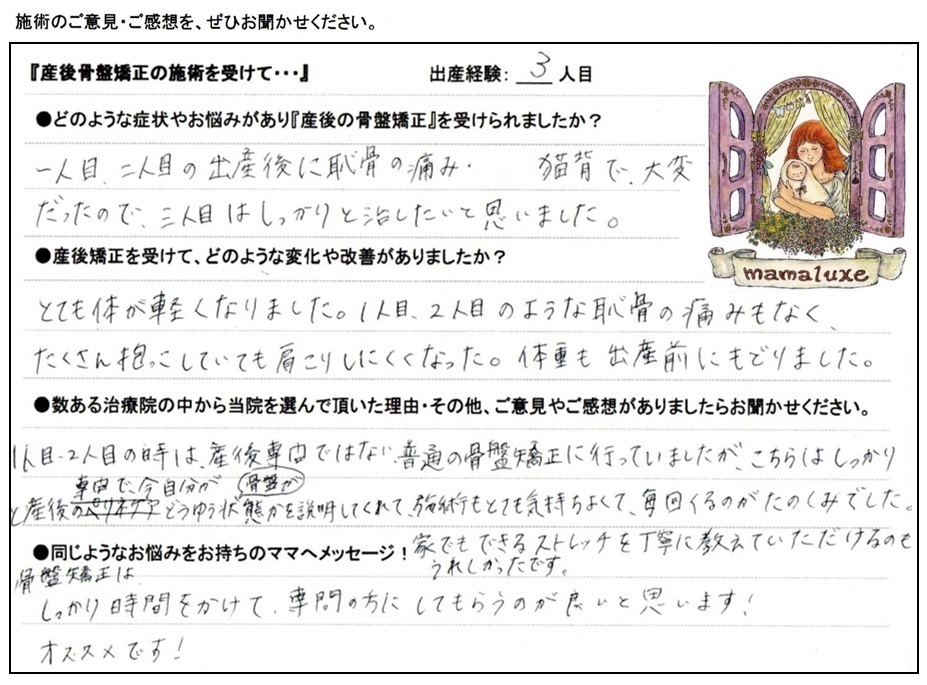 施術のご意見・ご感想を、ぜひお聞かせください。
『産後骨盤矯正の施術を受けて・・・』 出産経験： 3 人目
●どのような症状やお悩みがあり『産後の骨盤矯正』を受けられましたか？
一人目、二人目の出産後に恥骨の痛み・ 猫背で、大変
だったので、三人目はしっかりと治したいと思いました。
●産後矯正を受けて、どのような変化や改善がありましたか？
mamaluxe
とても体が軽くなりました。1人目、2人目のような恥骨の痛みもなく、
たくさん抱っこしていても肩こりしにくくなった。体重も出産前にもどりました。
●数ある治療院の中から当院を選んで頂いた理由・その他、ご意見やご感想がありましたらお聞かせください。
1人目、2人目の時は、産後専門ではない、普通の骨盤矯正に行っていましたが、こちらはしっかり
専門で、今自分が 骨盤が
と産後の どうゆう状態かを説明してくれて、施術もとても気持ちよくて、毎回くるのがたのしみでした。
●同じようなお悩みをお持ちのママへメッセージ！ 家でもできるストレッチを丁寧に教えていただけるのも
うれしかったです。
骨盤矯正は、
しっかり時間をかけて、専門の方にしてもらうのが良いと思います！
オススメです！